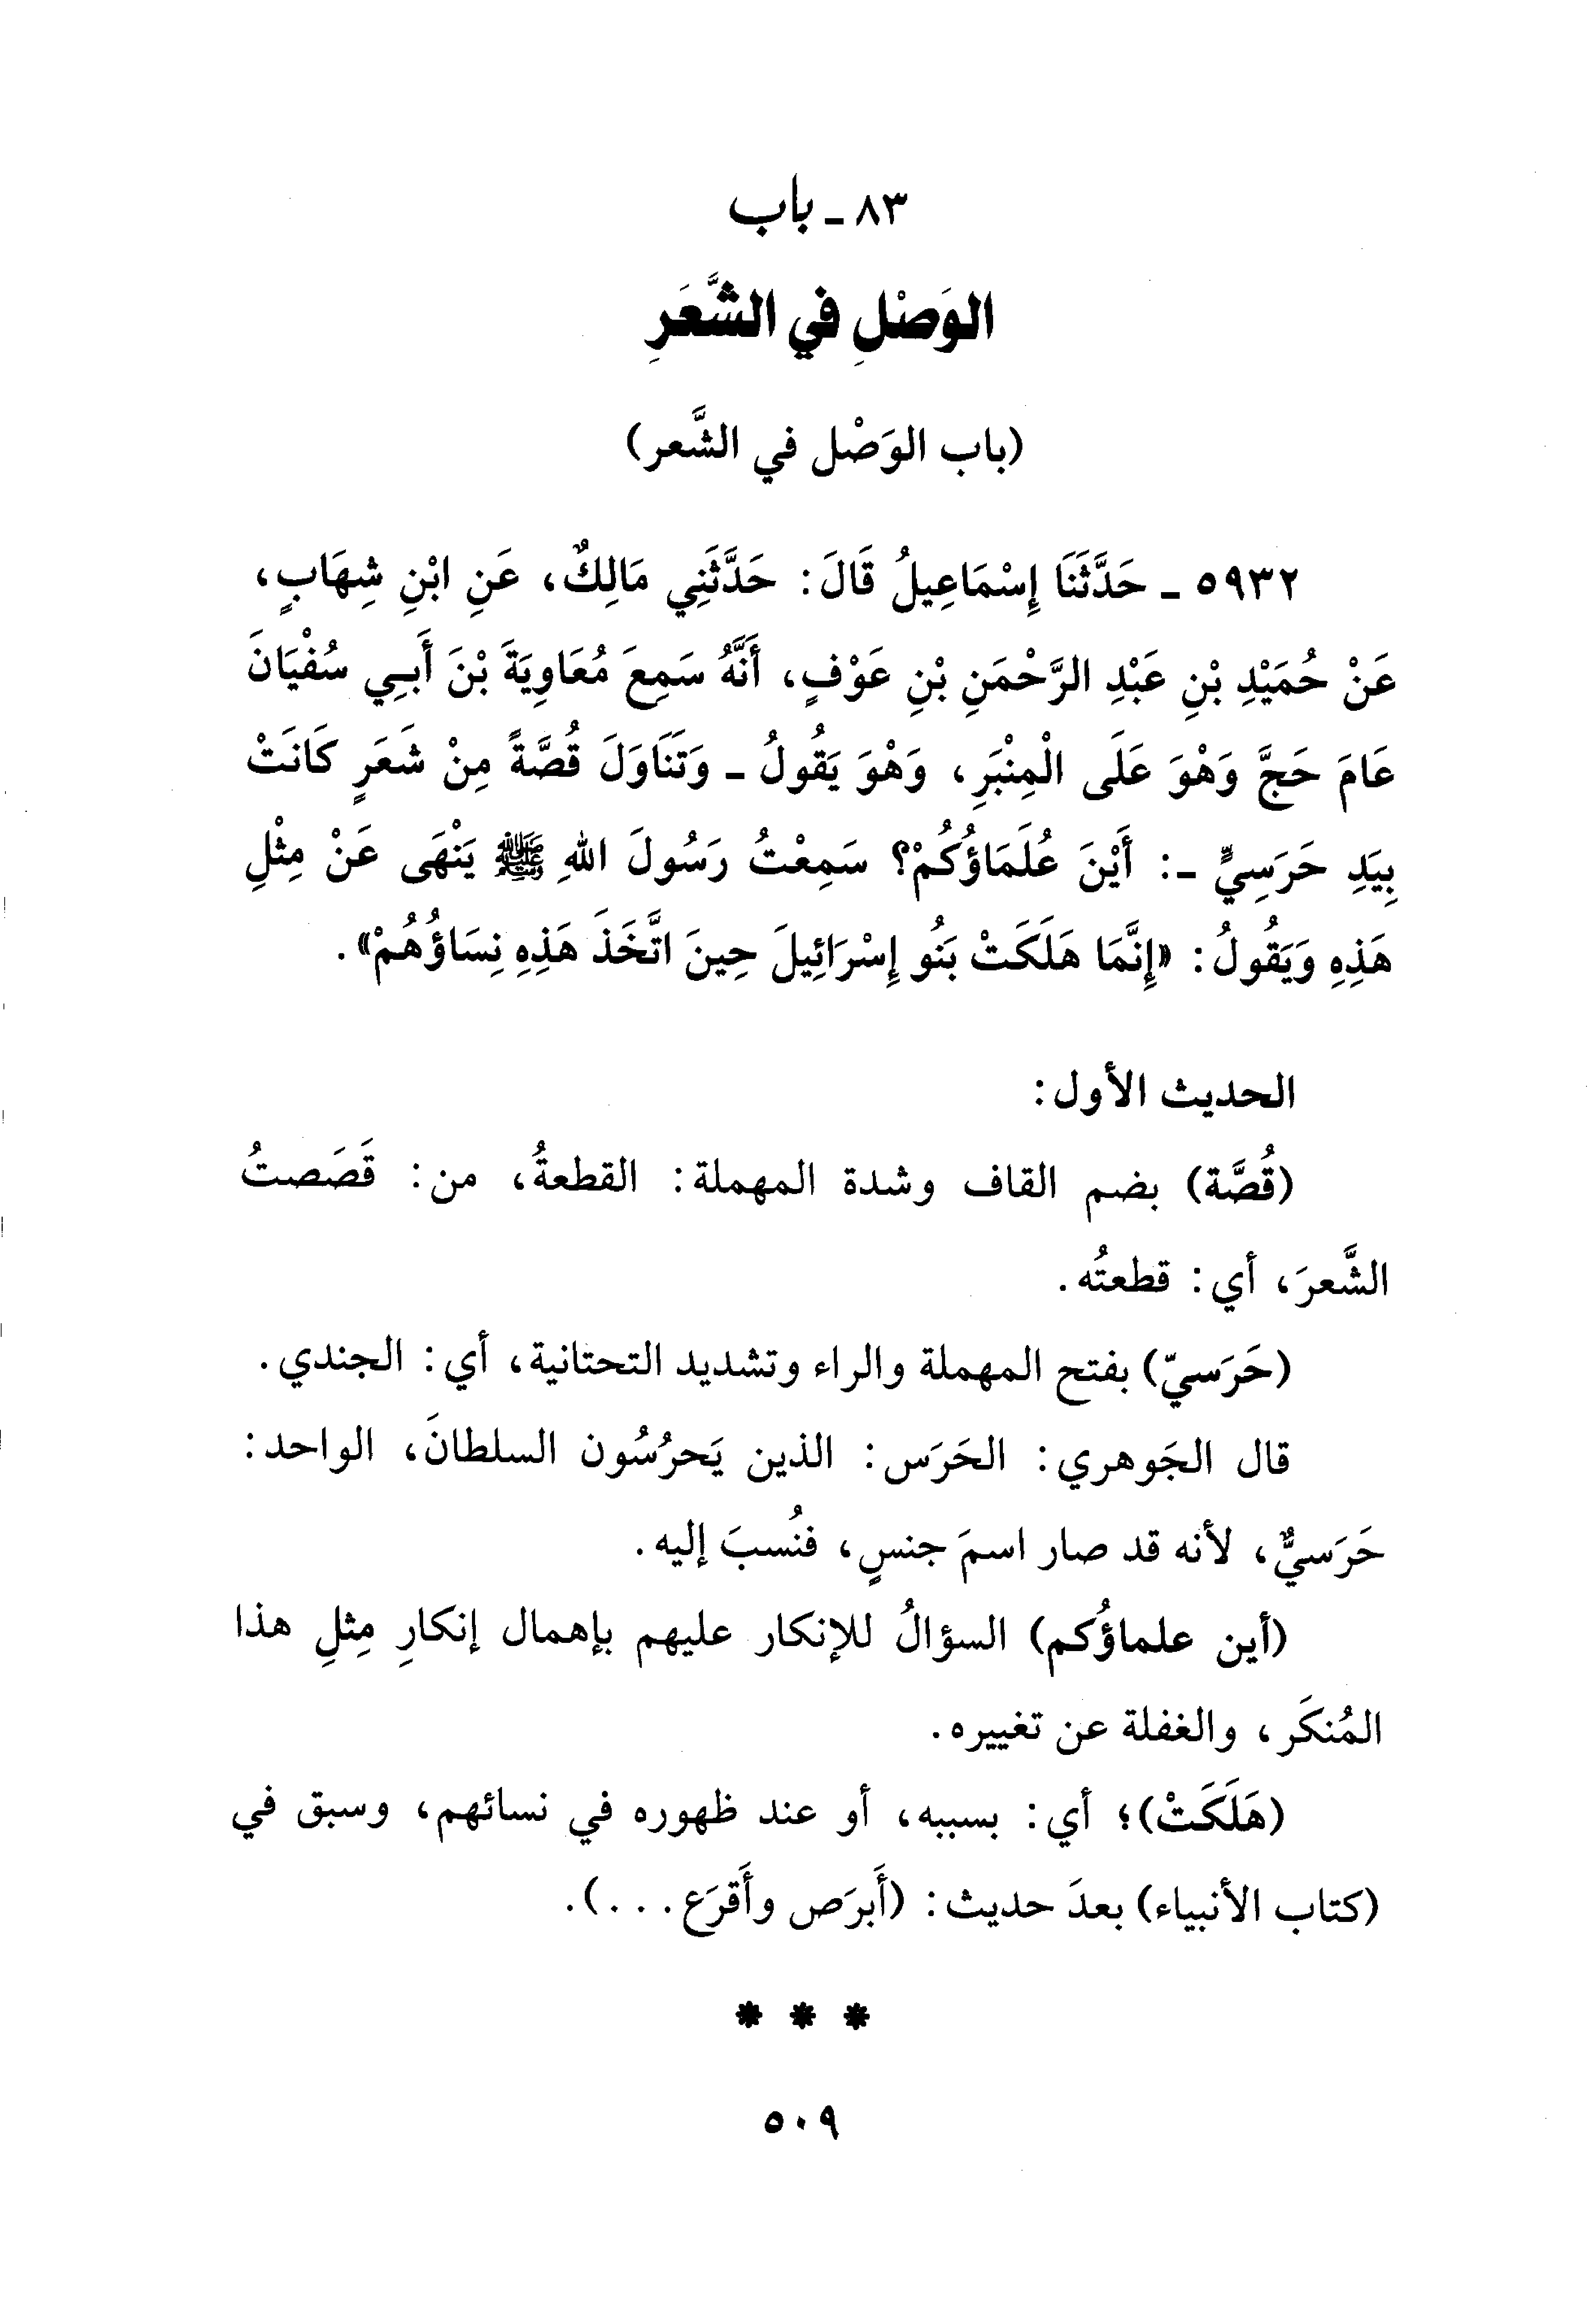 ٨٣ ـ باب
الوَصْلِ في الشَّعَرِ
(باب الوَصْل في الشَّعر)
٥٩٣٢ ـ حَدَّثَنَا إِسْمَاعِيلُ قَالَ: حَدَّثَنِي مَالِكٌ، عَنِ ابْنِ شِهَابٍ،
عَنْ حُمَيْدِ بْنِ عَبْدِ الرَّحْمَنِ بْنِ عَوْفٍ، أَنَّهُ سَمِعَ مُعَاوِيَةَ بْنَ أَبِي سُفْيَانَ
عَامَ حَجَّ وَهْوَ عَلَى الْمِنْبَرِ، وَهْوَ يَقُولُ ـ وَتَنَاوَلَ قُصَّةً مِنْ شَعَرٍ كَانَتْ
بِيَدِ حَرَسِيٍّ ـ: أَيْنَ عُلَمَاؤُكُمْ؟ سَمِعْتُ رَسُولَ اللهِ ﷺ يَنْهَى عَنْ مِثْلِ
هَذِهِ وَيَقُولُ: «إِنَّمَا هَلَكَتْ بَنُو إِسْرَائِيلَ حِينَ اتَّخَذَ هَذِهِ نِسَاؤُهُمْ».
الحديث الأول:
(قُصَّة) بضم القاف وشدة المهملة: القطعةُ، من: قَصَصتُ
الشَّعرَ، أي: قطعتُه.
(حَرَسيّ) بفتح المهملة والراء وتشديد التحتانية، أي: الجندي.
قال الجَوهري: الحَرَس: الذين يَحرُسُون السلطانَ، الواحد:
حَرَسيٌّ، لأنه قد صار اسمَ جنسٍ، فنُسبَ إليه.
(أين علماؤُكم) السؤالُ للإنكار عليهم بإهمال إنكارِ مِثلِ هذا
المُنكَر، والغفلة عن تغييره.
(هَلَكَتْ)؛ أي: بسببه، أو عند ظهوره في نسائهم، وسبق في
(كتاب الأنبياء) بعدَ حديث: (أَبرَص وأَقرَع...).
* * *
٥٠٩